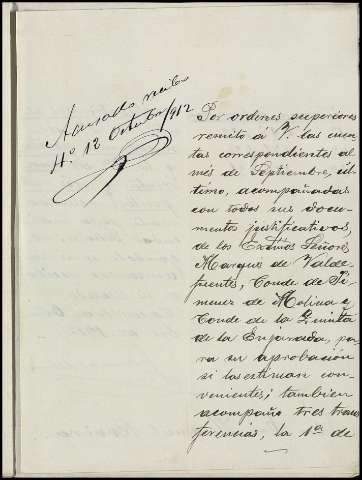 Acusado recibo
H.º 12 Octubre/912
Por ordenes superiores
remito á V. las cuen-
tas correspondientes al
més de Septiembre, úl-
timo, acompañadas
con todos sus docu-
mentos justificativos,
de los Exmos Señores
Marques de Valde-
fuentes, Conde de Xi-
menez de Molina e
Conde de la Quinta
de la Enjarada, pa-
ra su aprobación
si las estiman con-
venientes; tambien
acompaño tres trans
ferencias, la 1ª de